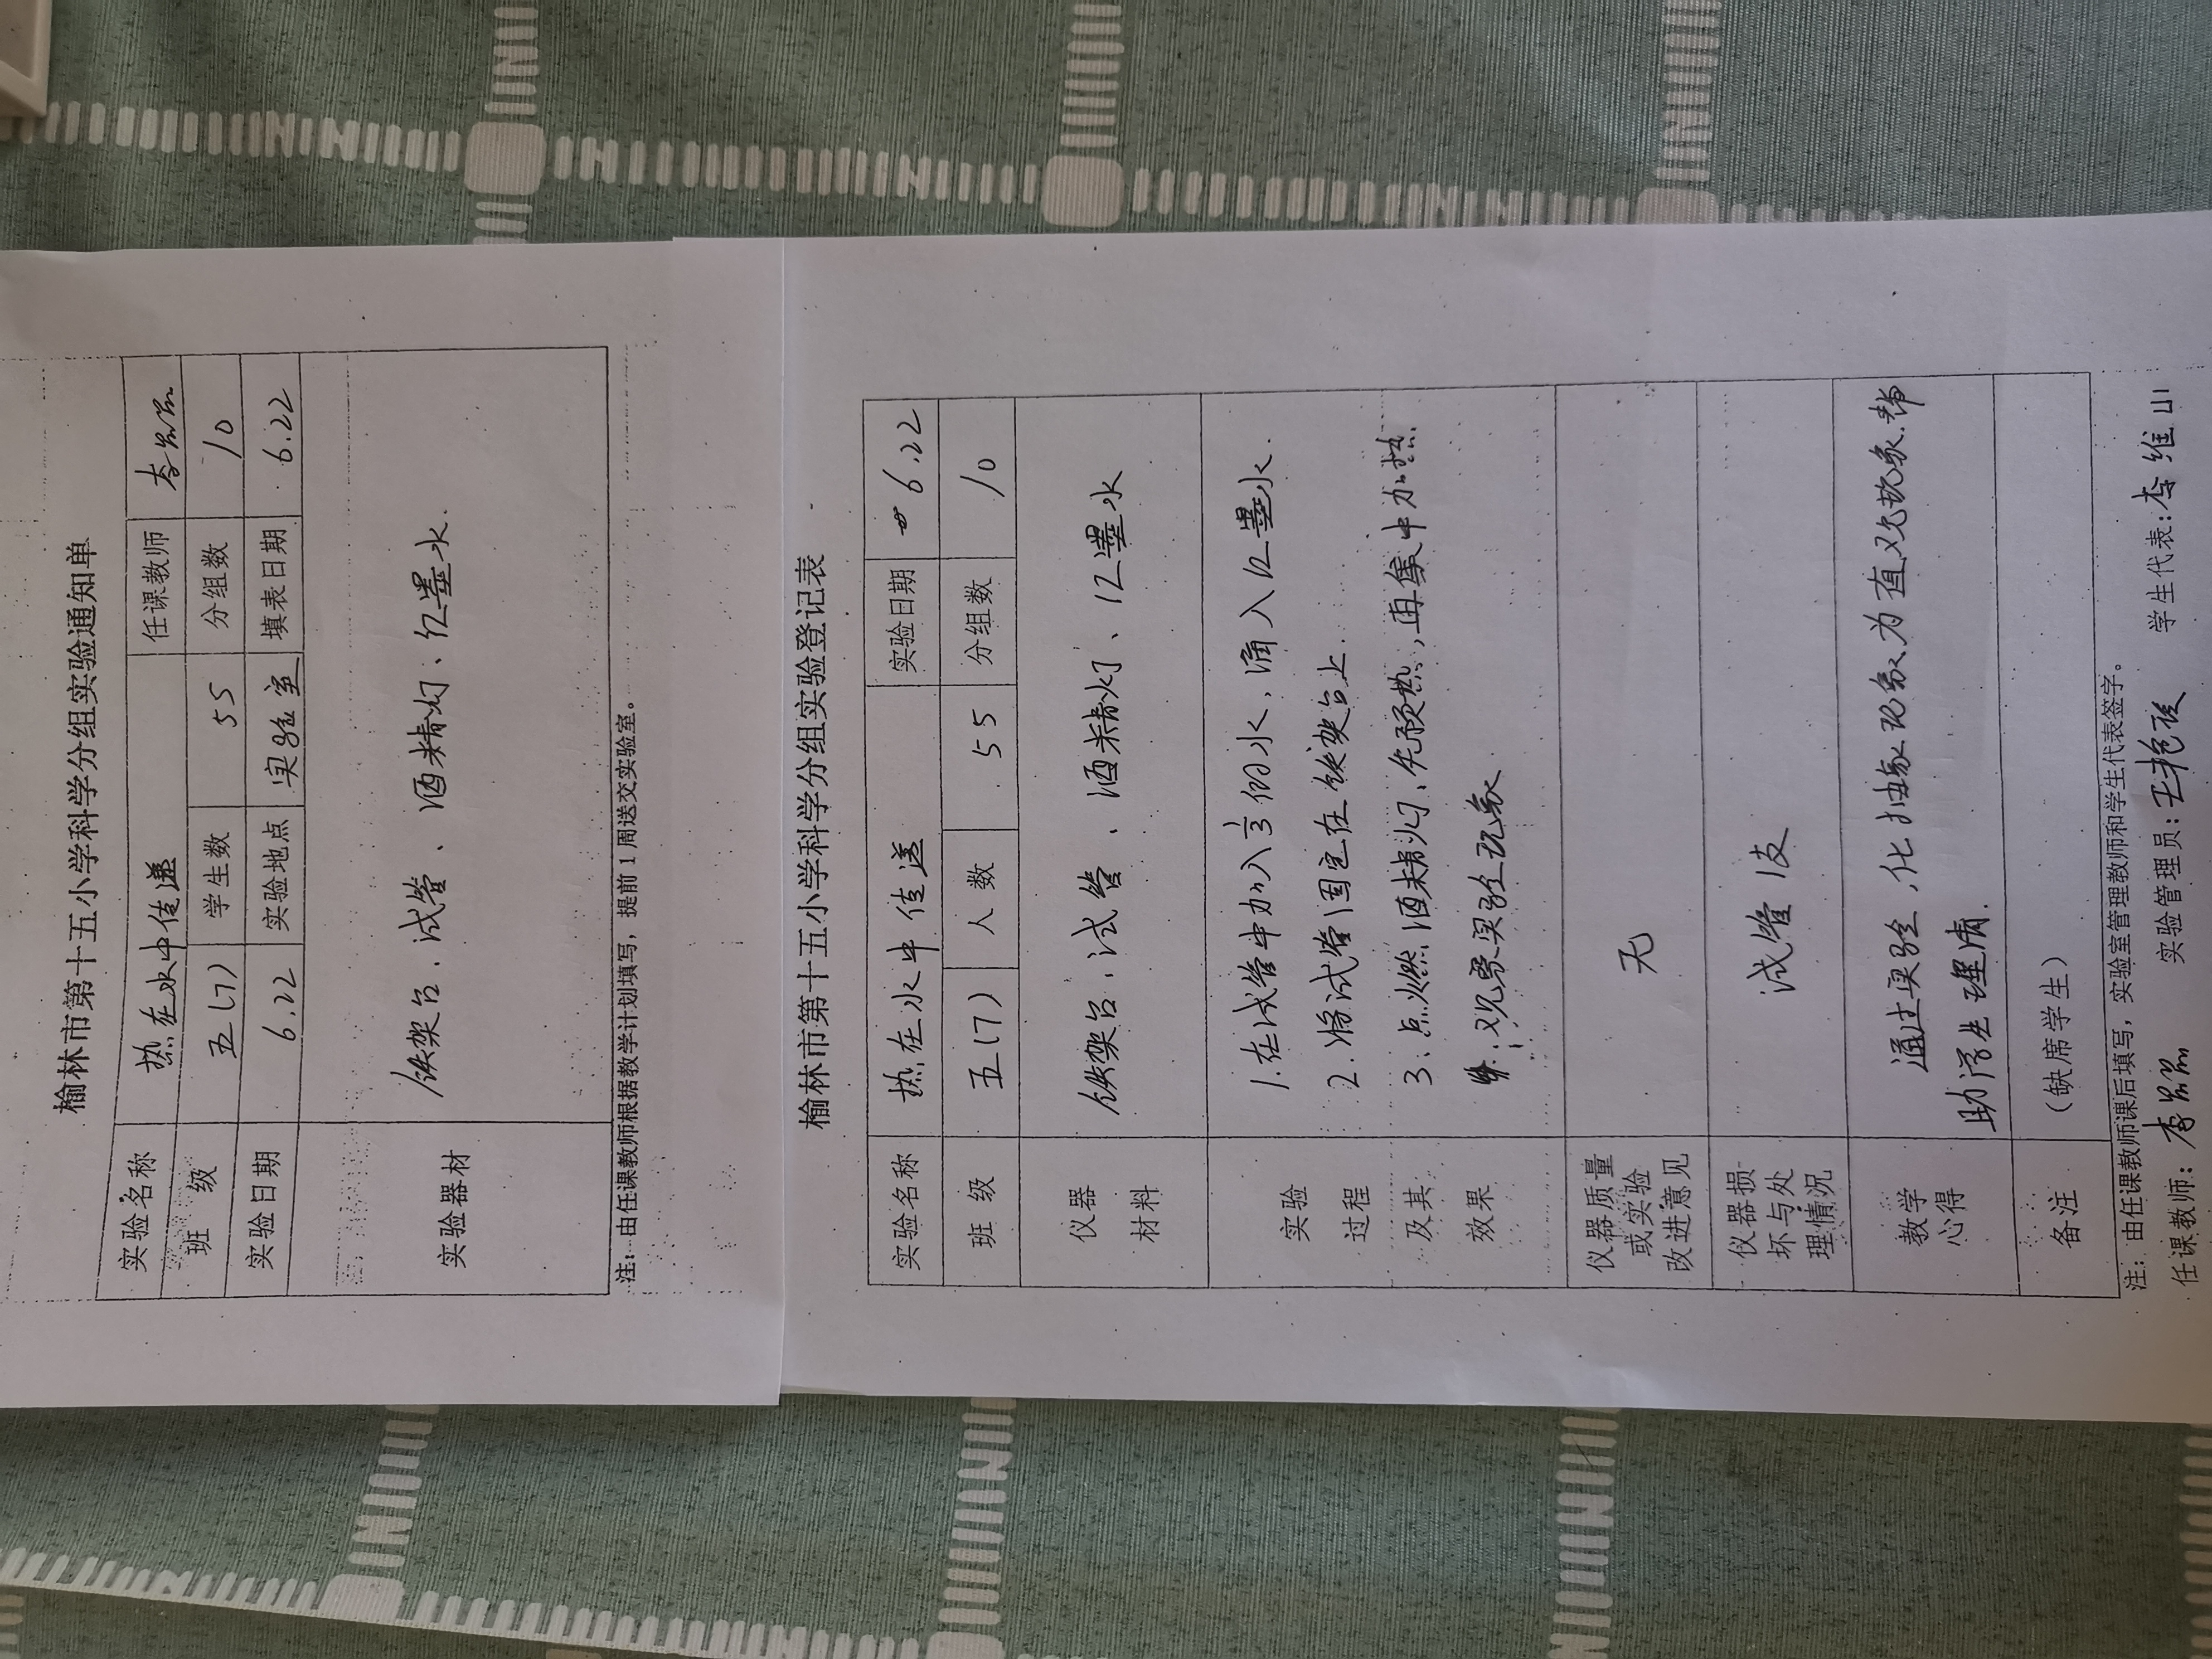 榆林市第十五小学科学分组实验通知单
实验名称 热在水中传递 任课教师
班 级 五(7) 学生数 55 分组数 10
实验日期 6.22 实验地点 实验室 填表日期 6.22
实验器材 铁架台、试管、酒精灯、红墨水.
注: 由任课教师根据教学计划填写, 提前1周送交实验室。
榆林市第十五小学科学分组实验登记表
实验名称 热在水中传递 实验日期 6.22
班 级 五(7) 人 数 55 分组数 10
仪器材料 铁架台、试管、酒精灯、红墨水
实验过程及其效果
1.在试管中加入⅓的水,滴入红墨水.
2.将试管固定在铁架台上.
3.点燃酒精灯,先预热,再集中加热.
观察实验现象
仪器质量或实验改进意见 无
仪器损坏与处理情况 试管 1支
教学心得 通过实验,化抽象现象为直观现象.帮
助学生理清.
备注 (缺席学生)
注: 由任课教师课后填写, 实验室管理教师和学生代表签字。
任课教师: 实验管理员: 学生代表: 李维山